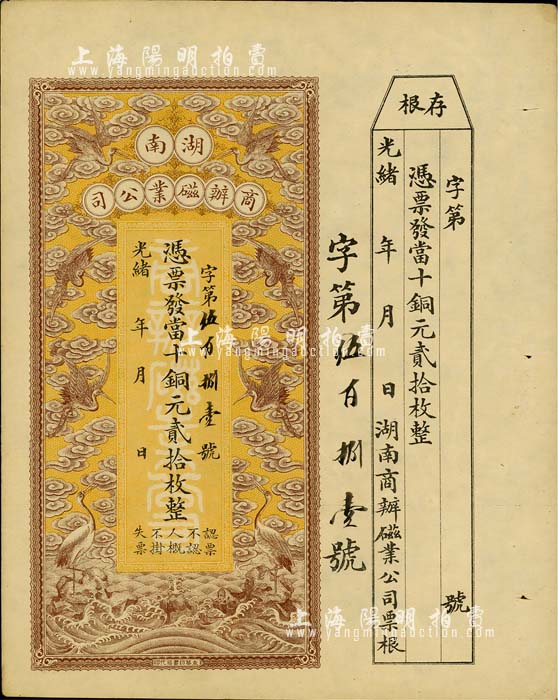 上海陽明拍賣
www.yangmingauction.com
湖南
商辦磁業公司
字第伍百捌壹號
憑票發當十銅元貳拾枚整
光緒 年 月 日
認票不認人概不掛失票
字第伍百捌壹號
存根
字第 號
憑票發當十銅元貳拾枚整
光緒 年 月 日湖南商辦磁業公司票根
上海陽明拍賣
www.yangmingauction.com
上海陽明拍賣
www.yangmingauction.com